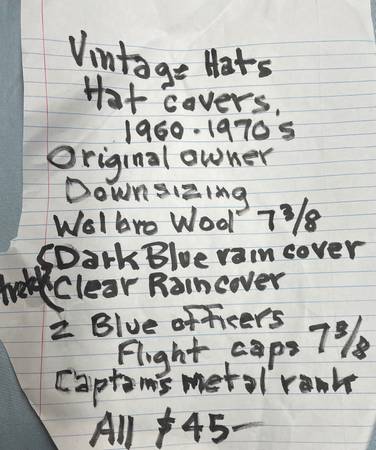 Vintage Hats
Hat covers,
1960-1970's
Original owner
Downsizing
Walbro Wool 7 3/8
Dark Blue rain cover
Clear Raincover
2 Blue officers
Flight caps 7 3/8
Captains metal rank
All $45-